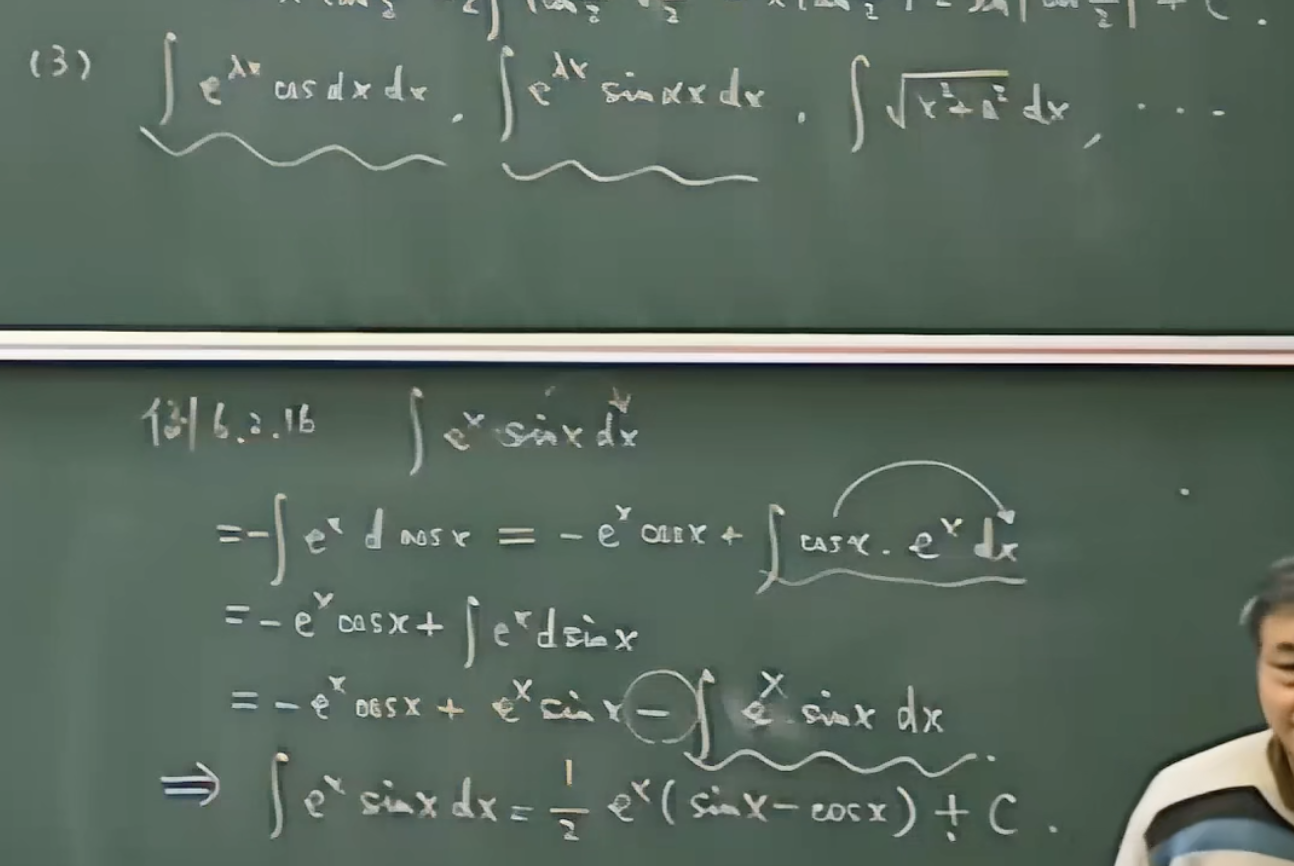 (3) ∫ e^{λx} cos αx dx , ∫ e^{λx} sin αx dx , ∫ √(x²±a²) dx , ...
例 6.2.16 ∫ e^x sin x dx
= -∫ e^x d cos x = -e^x cos x + ∫ cos x · e^x dx
= -e^x cos x + ∫ e^x d sin x
= -e^x cos x + e^x sin x - ∫ e^x sin x dx .
⇒ ∫ e^x sin x dx = 1/2 e^x (sin x - cos x) + C .